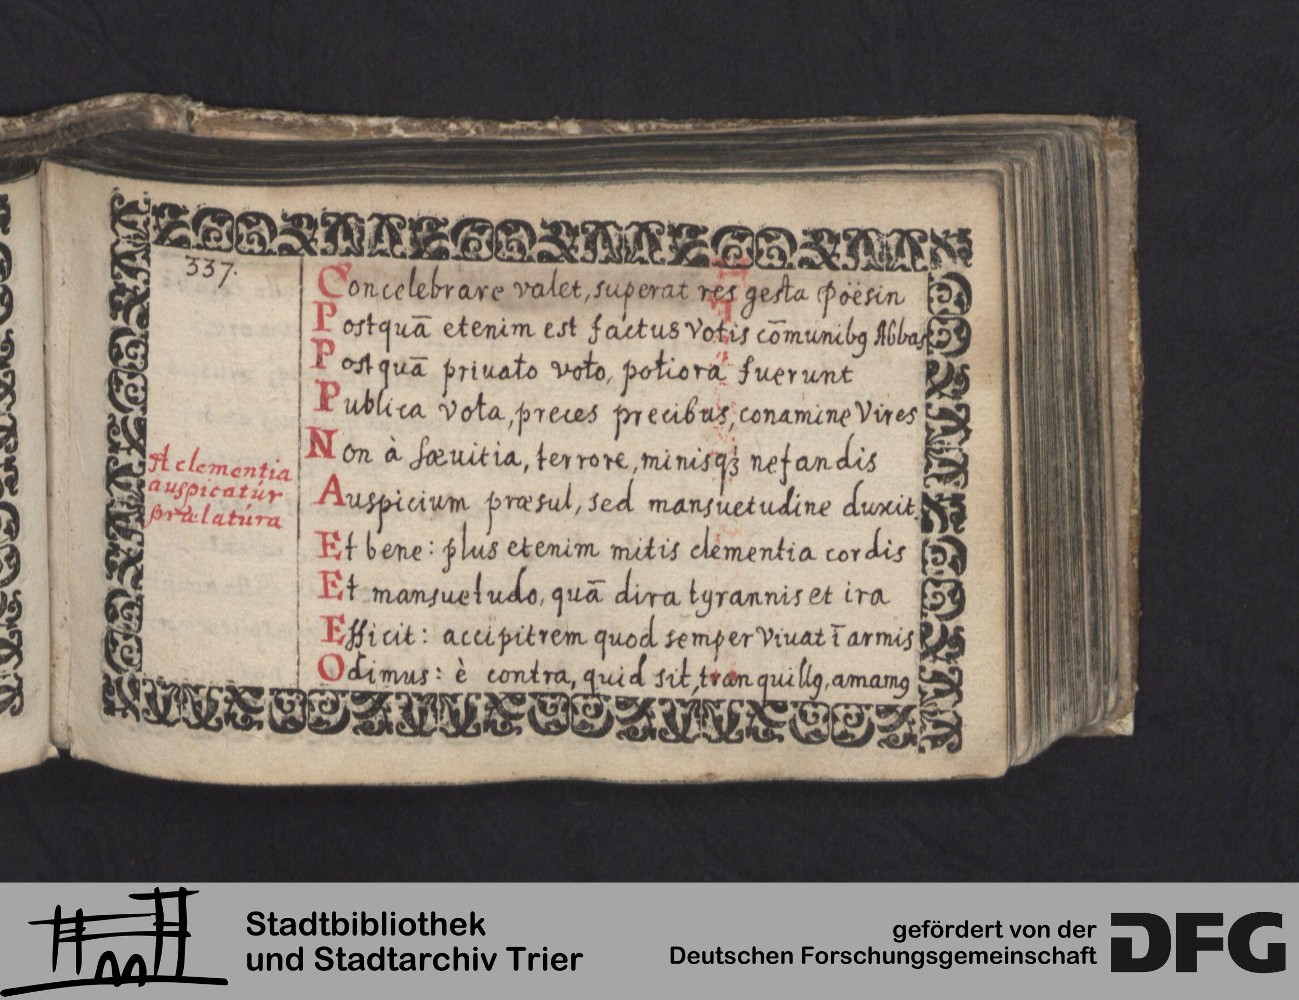 337.
Concelebrare valet, superat res gesta Poësin
Postquā etenim est factus votis cōmunibꝯ Abbas
Postquā priuato voto, potiora fuerunt
Publica vota, preces precibus, conamine Vires
Non à sæuitia, terrore, minisqꝫ nefandis
A clementia
auspicatúr
prælatúra
Auspicium præsul, sed mansuetudine duxit
Et bene: plus etenim mitis clementia cordis
Et mansuetudo, quā dira tyrannis et ira
Efficit: accipitrem quod semper Viuat ī armis
Odimus: è contra, quid sit, tranquillꝯ, amamꝯ
Stadtbibliothek
und Stadtarchiv Trier
gefördert von der
Deutschen Forschungsgemeinschaft
DFG